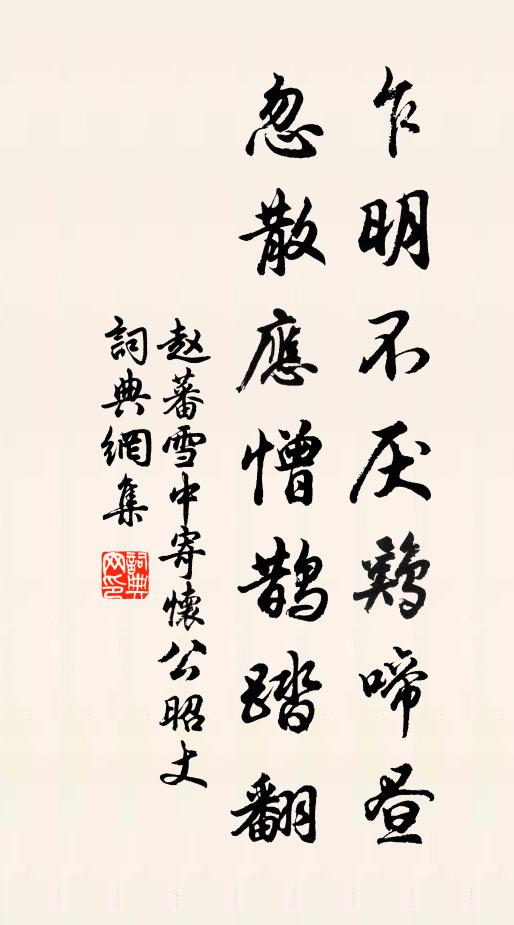 乍明不厌鷄啼昼
忽散應憎鹊踏翻
赵蕃雪中寄懷公昭丈
詞典網集
詞典網印